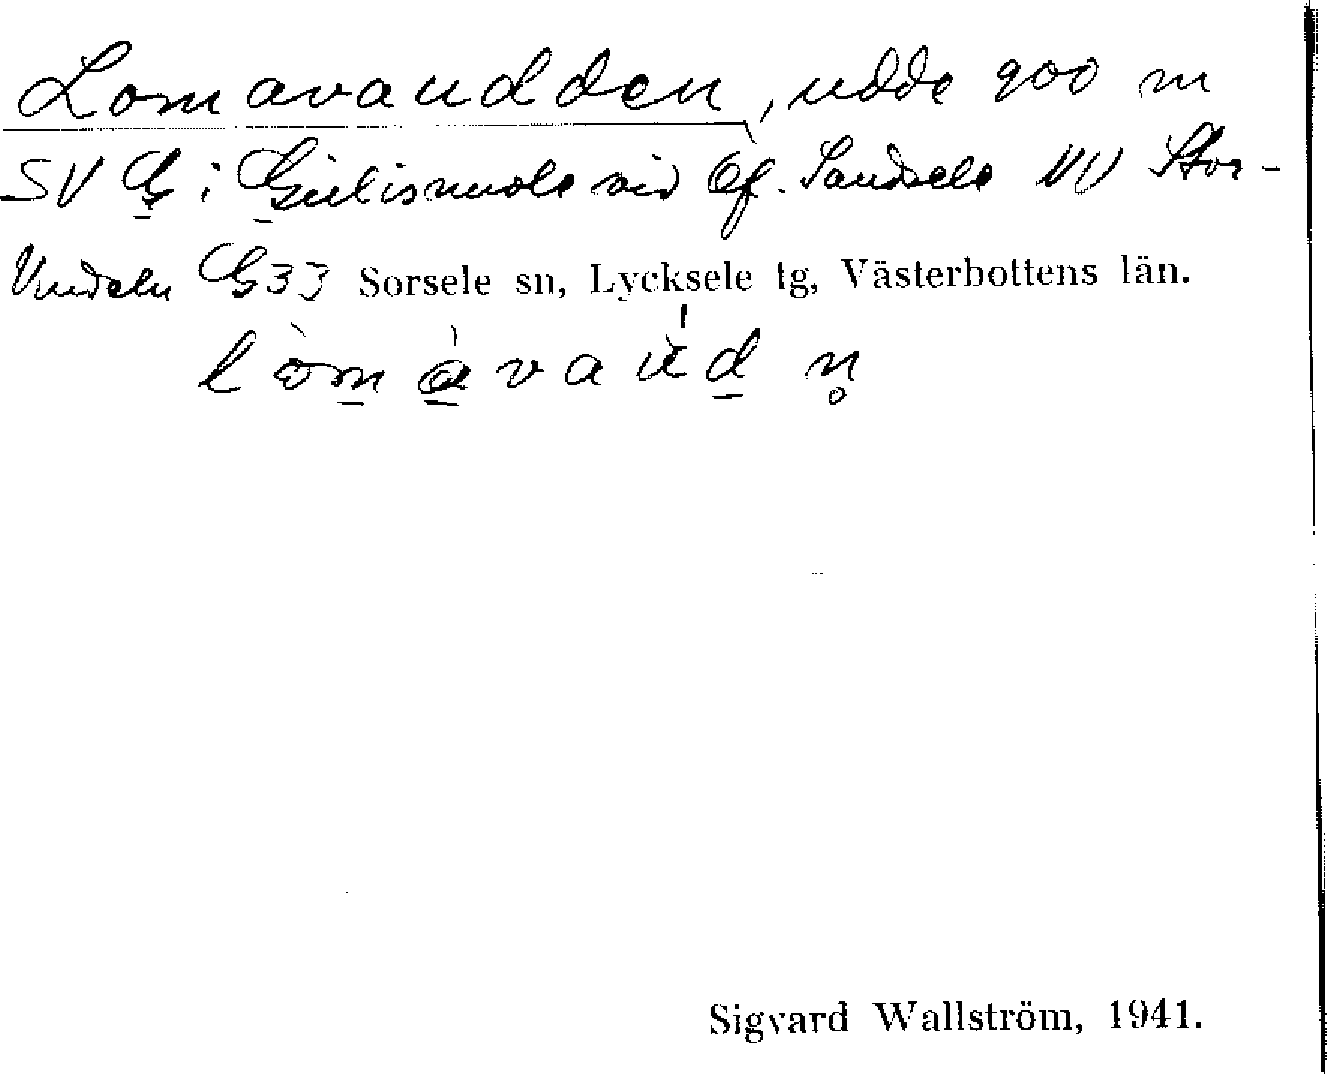 Lomavaudden, udde 900 m
SV G i Giulismuole vid Öf. Sandsele NV Stor-
Vindeln G33 Sorsele sn, Lycksele tg, Västerbottens län.
lòmàvaúd n̥
Sigvard Wallström, 1941.